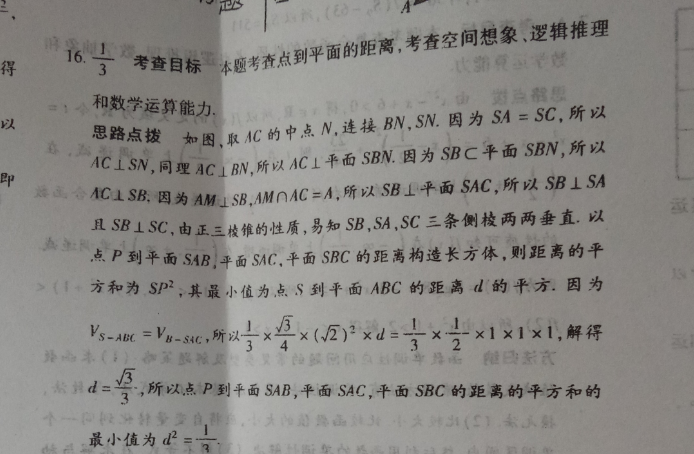 得
以
即
A
16. 1/3 考查目标 本题考查点到平面的距离,考查空间想象、逻辑推理
和数学运算能力.
思路点拨 如图,取AC的中点N,连接BN,SN.因为SA=SC,所以
AC⊥SN,同理AC⊥BN,所以AC⊥平面SBN.因为SB⊂平面SBN,所以
AC⊥SB.因为AM⊥SB,AM∩AC=A,所以SB⊥平面SAC,所以SB⊥SA
且SB⊥SC,由正三棱锥的性质,易知SB,SA,SC三条侧棱两两垂直.以
点P到平面SAB,平面SAC,平面SBC的距离构造长方体,则距离的平
方和为SP²,其最小值为点S到平面ABC的距离d的平方.因为
V_{S-ABC}=V_{B-SAC},所以1/3×√3/4×(√2)²×d=1/3×1/2×1×1×1,解得
d=√3/3,所以点P到平面SAB,平面SAC,平面SBC的距离的平方和的
最小值为d²=1/3.